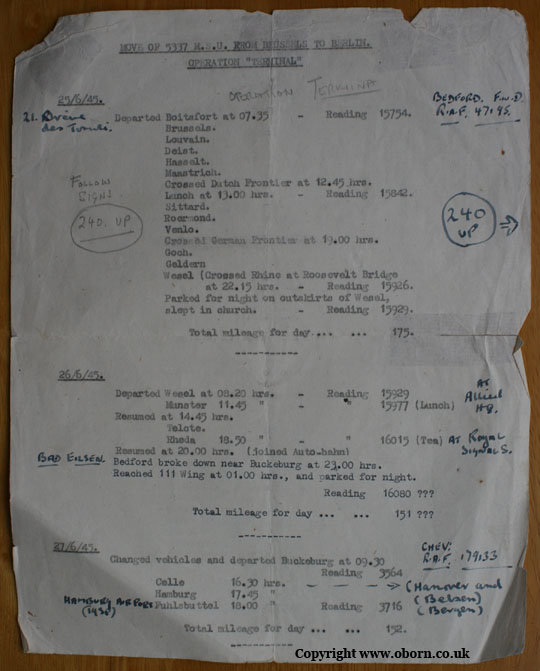 MOVE OF 5337 M.S.U. FROM BRUSSELS TO BERLIN.
OPERATION "TERMINAL"
OPERATION TERMINAL
25/6/45.
BEDFORD. F.W.D.
R.A.F. 47195.
21.
des
Departed Boitsfort at 07.35 - Reading 15754.
Brussels.
Louvain.
Deist.
Hasselt.
Maastrich.
Crossed Dutch Frontier at 12.45 hrs.
Lunch at 13.00 hrs. - Reading 15842.
Sittard.
Roermond.
Venlo.
Crossed German Frontier at 19.00 hrs.
Goch.
Geldern
Wesel (Crossed Rhine at Roosevelt Bridge
at 22.15 hrs. - Reading 15926.
Parked for night on outskirts of Wesel,
slept in church. - Reading 15929.
FOLLOW
SIGNS
240. UP
240
UP
Total mileage for day... ... 175.
------------
26/6/45.
Departed Wesel at 08.20 hrs. - Reading 15929
Munster 11.45 " - " 15977 (Lunch)
AT
Allied
HQ.
Resumed at 14.45 hrs.
Telete.
Rheda 18.50 " - " 16015 (Tea) AT Royal
Signals.
Resumed at 20.00 hrs. (joined Auto-bahn)
BAD EILSEN
Bedford broke down near Buckeburg at 23.00 hrs.
Reached 111 Wing at 01.00 hrs., and parked for night.
Reading 16080 ???
Total mileage for day ... ... 151 ???
------------
27/6/45.
Changed vehicles and departed Buckeburg at 09.30
Reading 3564
CHEV:
R.A.F. 179133
Celle 16.30 hrs. - - - - → (Hanover and
Hamburg 17.45 " (Belsen)
HAMBURG AIRPORT
(1936)
Fuhlsbuttel 18.00 " Reading 3716 (Bergen)
Total mileage for day ... ... 152.
------------
Copyright www.oborn.co.uk